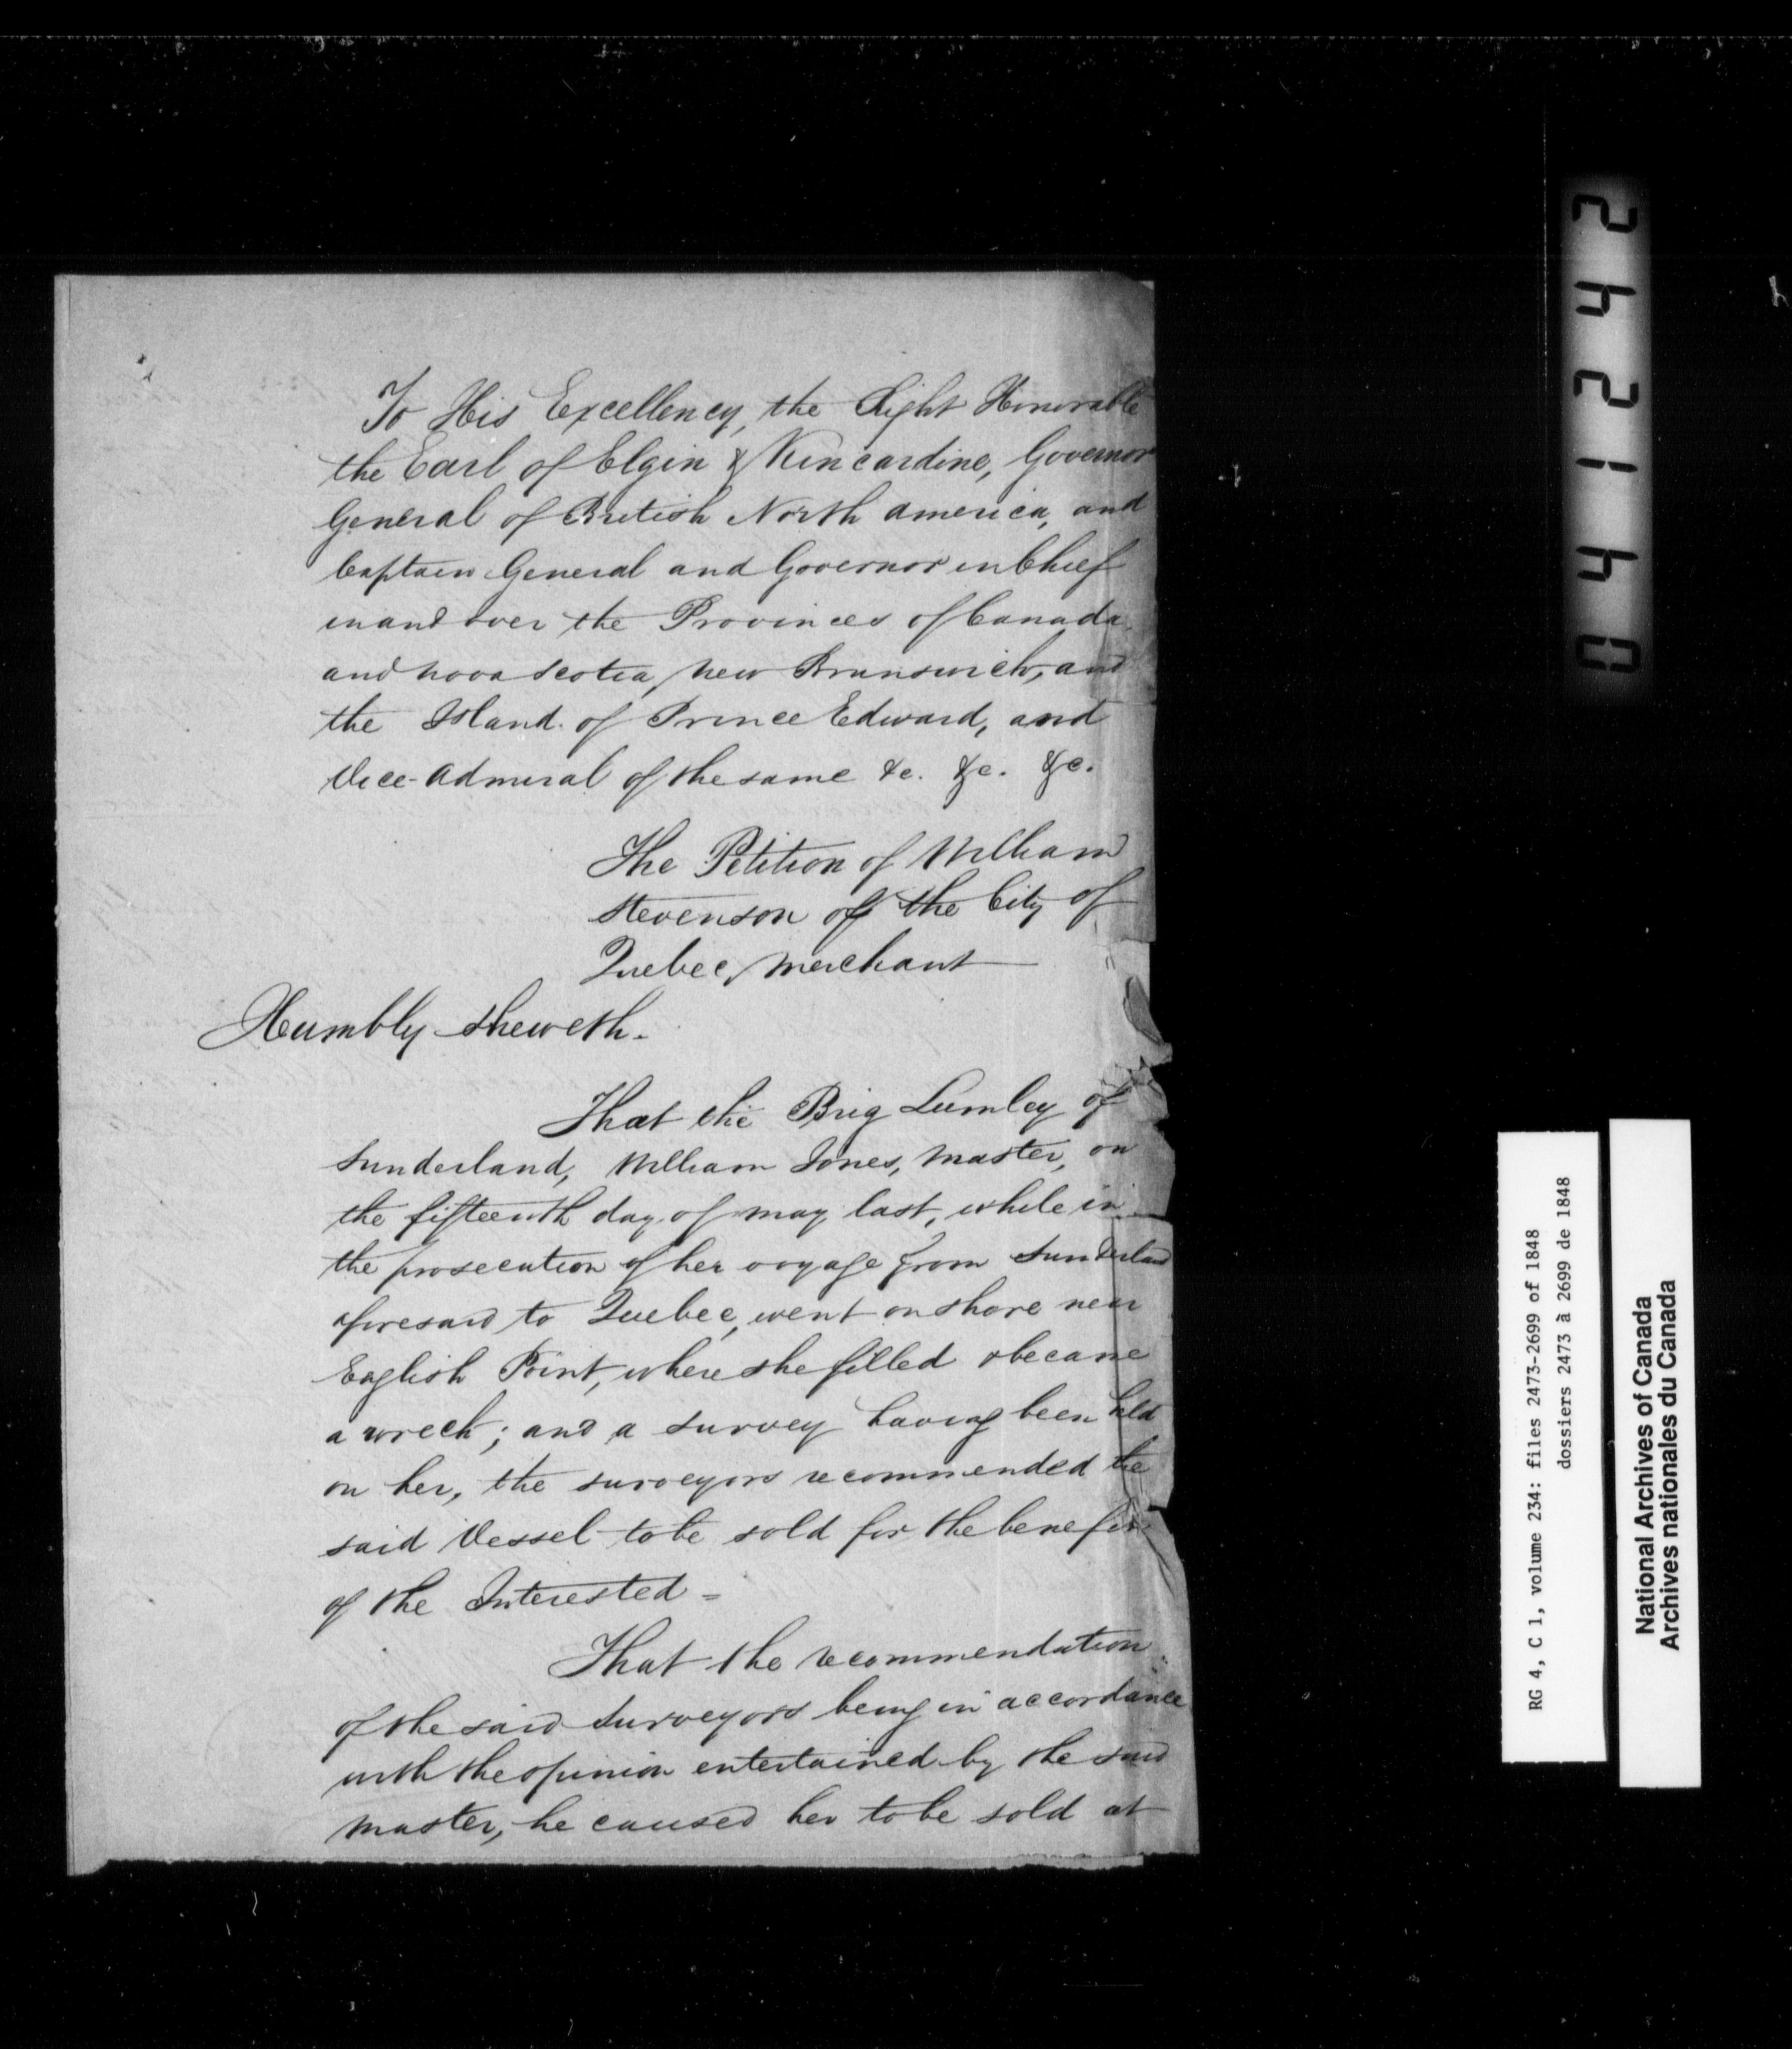 To His Excellency, the Right Honorable
the Earl of Elgin & Kincardine, Governor
General of British North America, and
Captain General and Governor in Chief
in and over the Provinces of Canada,
and Nova Scotia, New Brunswick, and
the Island of Prince Edward, and
Vice-Admiral of the same &c. &c. &c.
The Petition of William
Stevenson of the City of
Quebec, Merchant
Humbly sheweth.
That the Brig Lumley of
Sunderland, William Jones, Master, on
the fifteenth day of May last, while in
the prosecution of her voyage from Sunderland
aforesaid to Quebec, went on shore near
English Point, where she filled & became
a wreck; and a survey having been held
on her, the surveyors recommended the
said Vessel to be sold for the benefit
of the Interested =
That the recommendation
of the said Surveyors being in accordance
with the opinion entertained by the said
Master, he caused her to be sold at
041242
RG 4, C 1, volume 234: files 2473-2699 of 1848
dossiers 2473 à 2699 de 1848
National Archives of Canada
Archives nationales du Canada